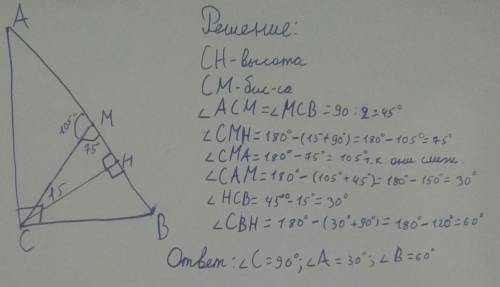 A
Решение:
CH-высота
CM-бис-са
∠ACM=∠MCB=90:2=45°
∠CMH=180°-(15+90°)=180°-105°=75°
∠CMA=180°-75°=105° т.к. они смеж.
∠CAM=180°-(105°+45°)=180°-150°=30°
∠HCB=45°-15°=30°
∠CBH=180°-(30°+90°)=180°-120°=60°
Ответ: ∠C=90°; ∠A=30°; ∠B=60°
105°
M
75
H
15
B
C